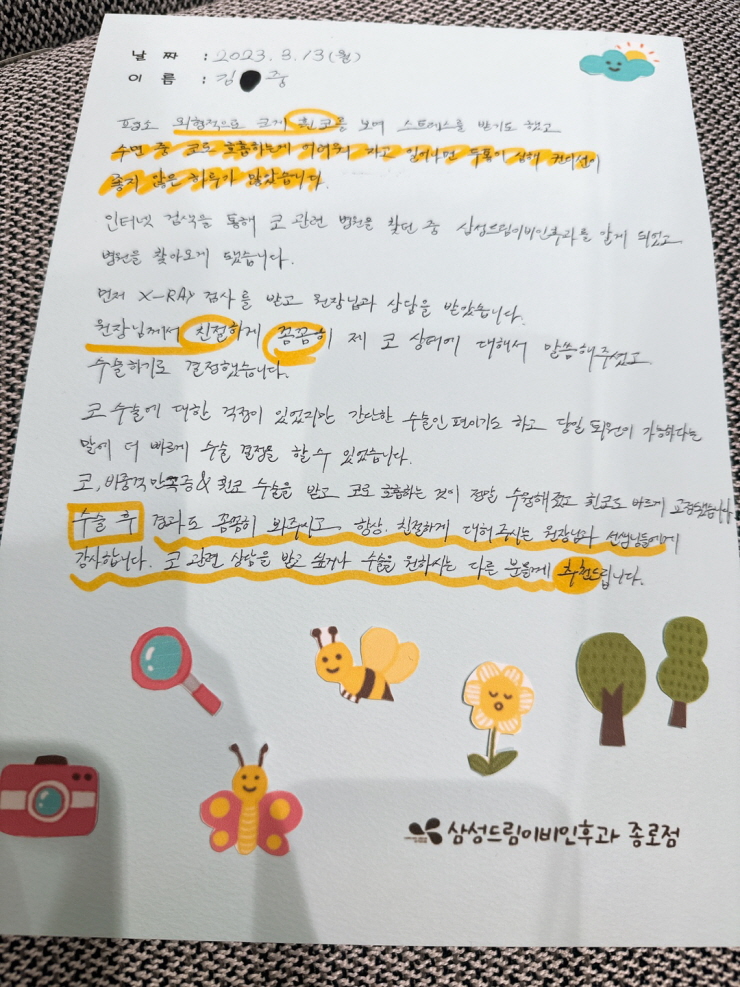 날 짜 : 2023. 3. 13 (월)
이 름 : 김 중
평소 외형적으로 크게 휜 코를 보며 스트레스를 받기도 했고
수면 중 코로 호흡하는게 어려워 자고 일어나면 두통이 심해 컨디션이
좋지 않은 하루가 많았습니다.
인터넷 검색을 통해 코 관련 병원을 찾던 중 삼성드림이비인후과를 알게 되었고
병원을 찾아오게 됐습니다.
먼저 X-RAY 검사를 받고 원장님과 상담을 받았습니다.
원장님께서 친절하게 꼼꼼히 제 코 상태에 대해서 말씀해주셨고
수술하기로 결정했습니다.
코 수술에 대한 걱정이 있었지만 간단한 수술인 편이기도 하고 당일 퇴원이 가능하다는
말에 더 빠르게 수술 결정을 할 수 있었습니다.
코, 비중격만곡증 & 휜코 수술을 받고 코로 호흡하는 것이 정말 수월해졌고 휜코도 바르게 교정됐습니다
수술 후 경과도 꼼꼼히 봐주시고, 항상 친절하게 대해주시는 원장님과 선생님들에게
감사합니다. 코 관련 상담을 받고 싶거나 수술을 원하시는 다른 분들께 추천드립니다.
삼성드림이비인후과 종로점